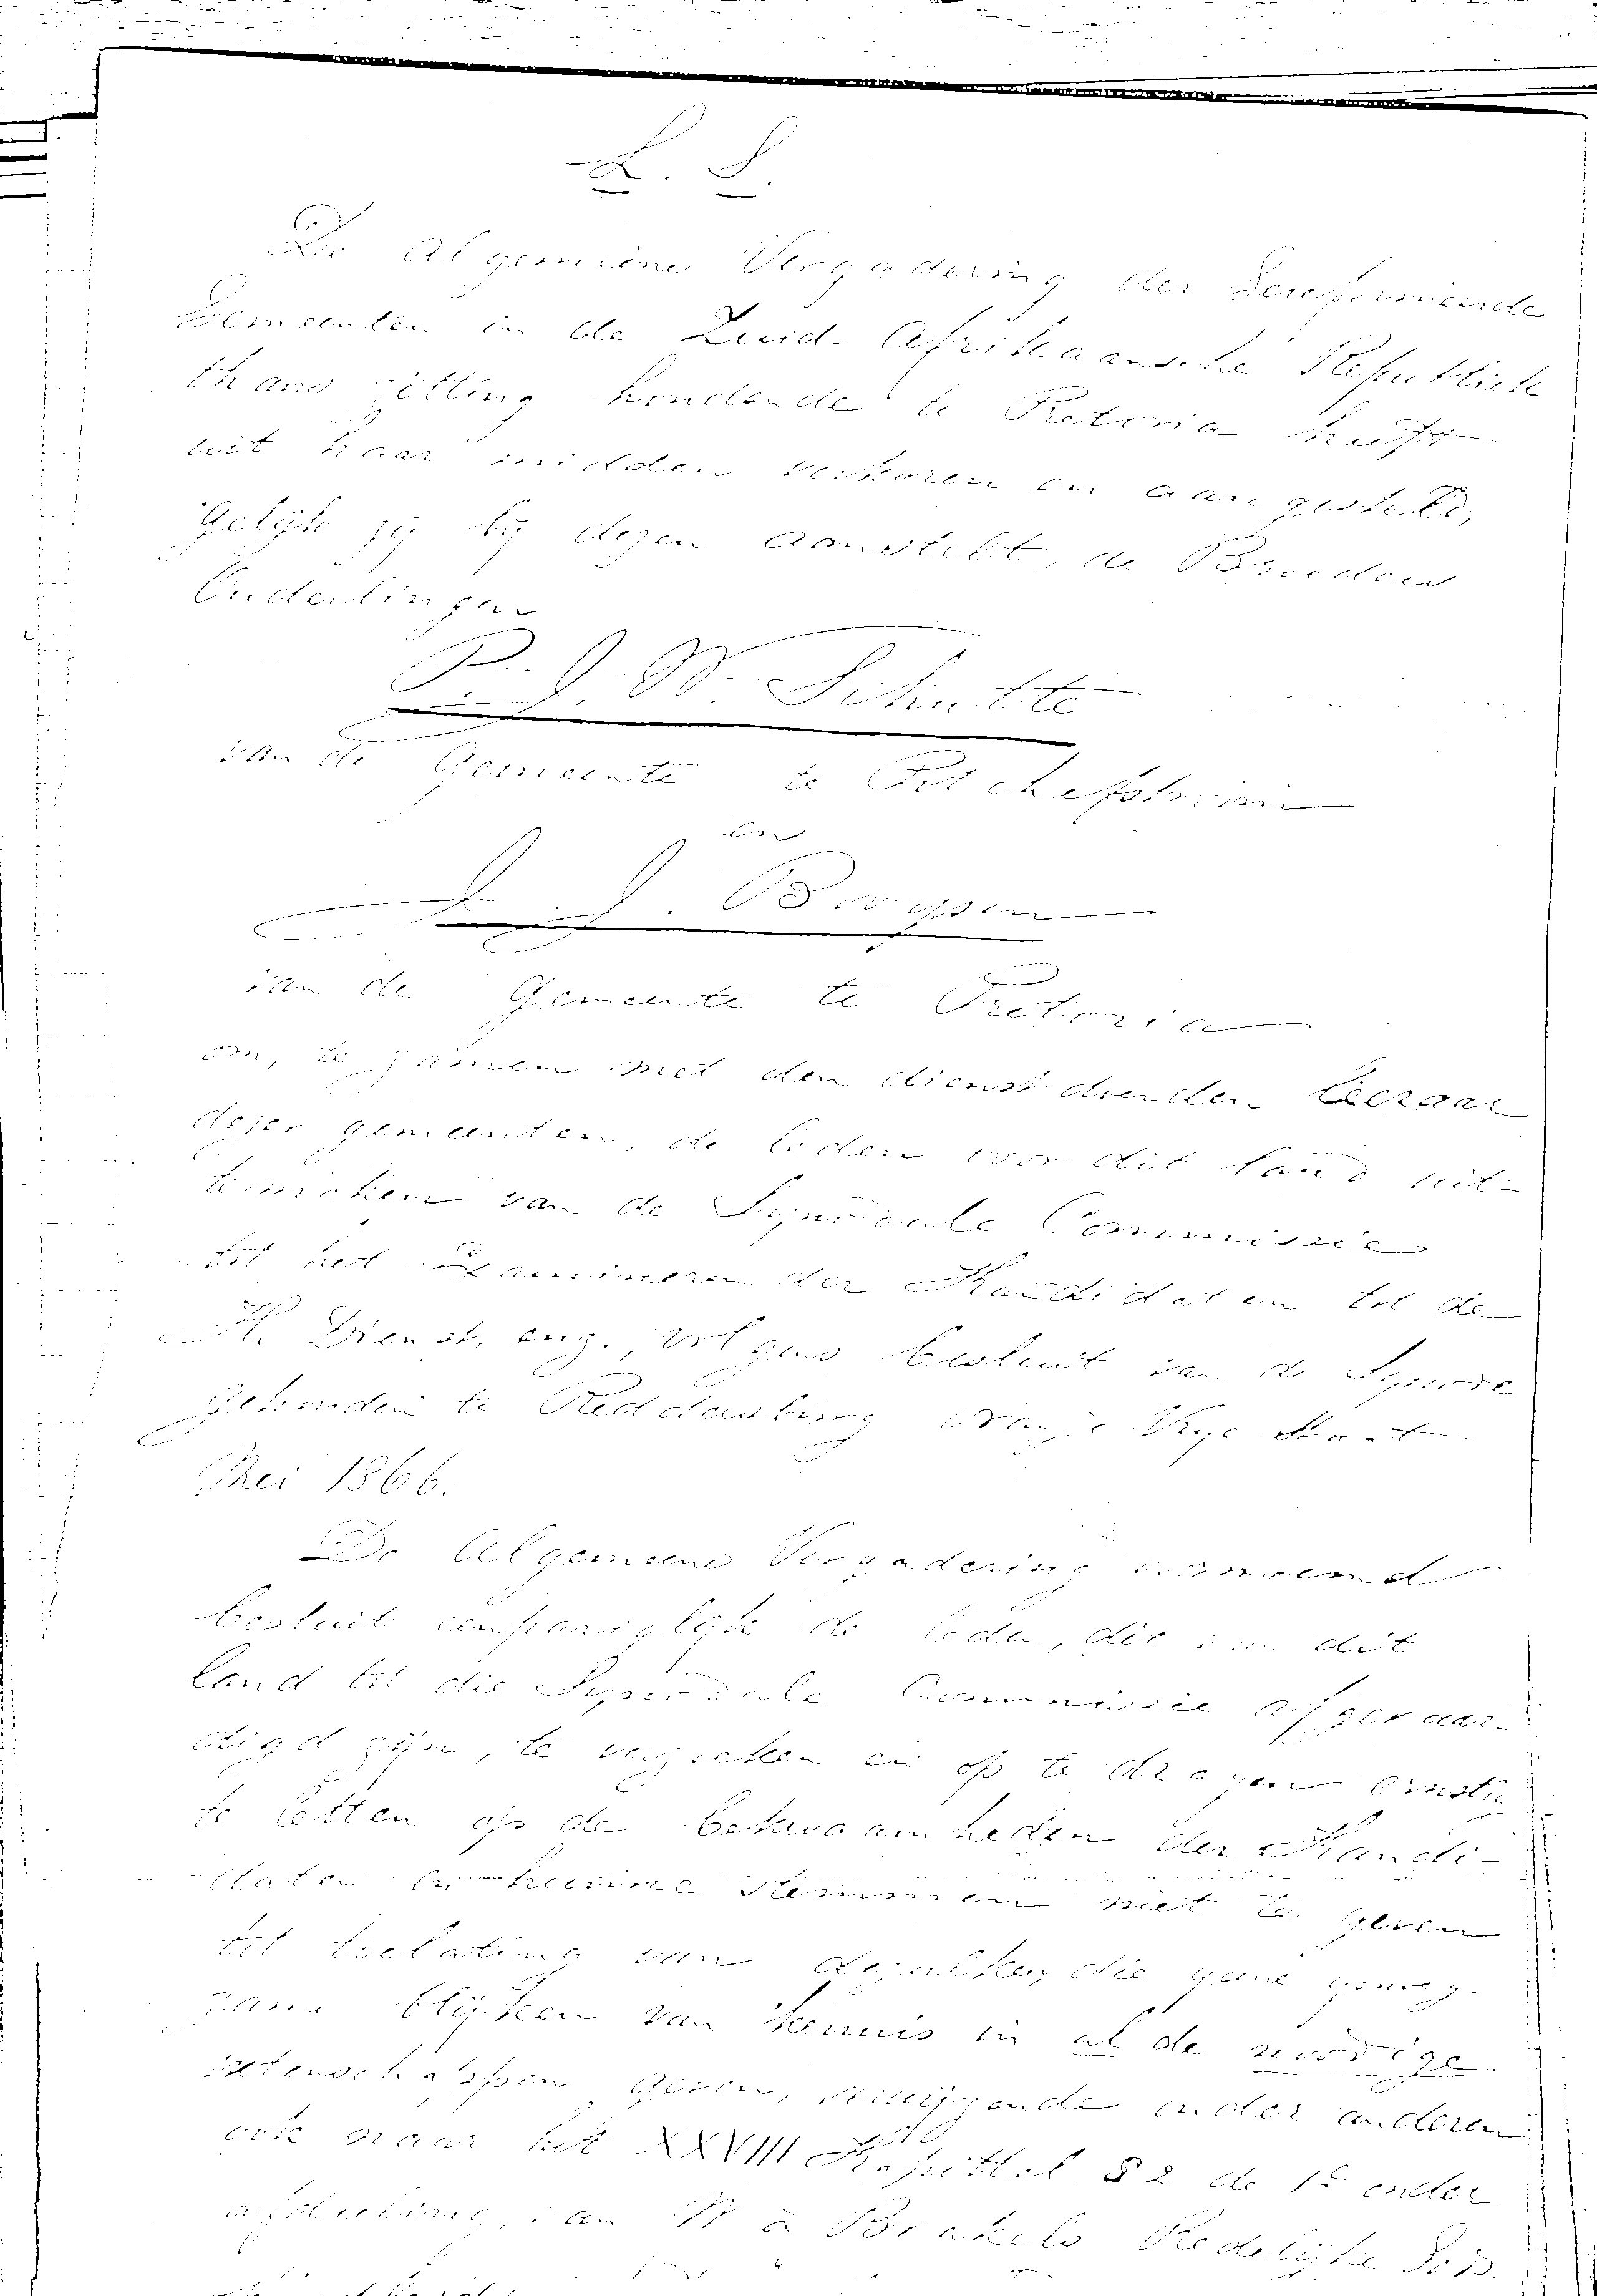 L. S.
De Algemeene Vergadering der Gereformeerde
Gemeenten in de Zuid-Afrikaansche Republiek
thans zitting houdende te Pretoria heeft
uit haar midden verkoren en aangesteld,
Gelijk zij bij dezen aanstelt, de Broeders
Ouderlingen
P. J. W. Schutte
van de Gemeente te Potchefstroom
en
J. J. Booysen
van de Gemeente te Pretoria
om, te zamen met den dienstdoenden Leeraar
dezer gemeenten, de leden voor dit land uit-
temaken van de Synodale Commissie
tot het examineren der Kandidaten tot de
H. Dienst, enz., volgens besluit van de Synode
gehouden te Reddersburg Oranje Vrye Staat
Mei 1866.
De Algemeene Vergadering voornoemd
besluit eenpariglijk de leden, die van dit
land tot die Synodale Commissie afgevaar-
digd zijn, te verzoeken en op te dragen ernstig
te letten op de bekwaamheden der Kandi-
daten en hunne stemmen niet te geven
tot toelating van dezulken, die geene genoeg-
zame blijken van kennis in al de noodige
wetenschappen geven, verwijzende onder anderen
ook naar het XXVIII Kapittel § 2 de 1e onder
afdeeling van W à Brakels Redelijke Godsd.